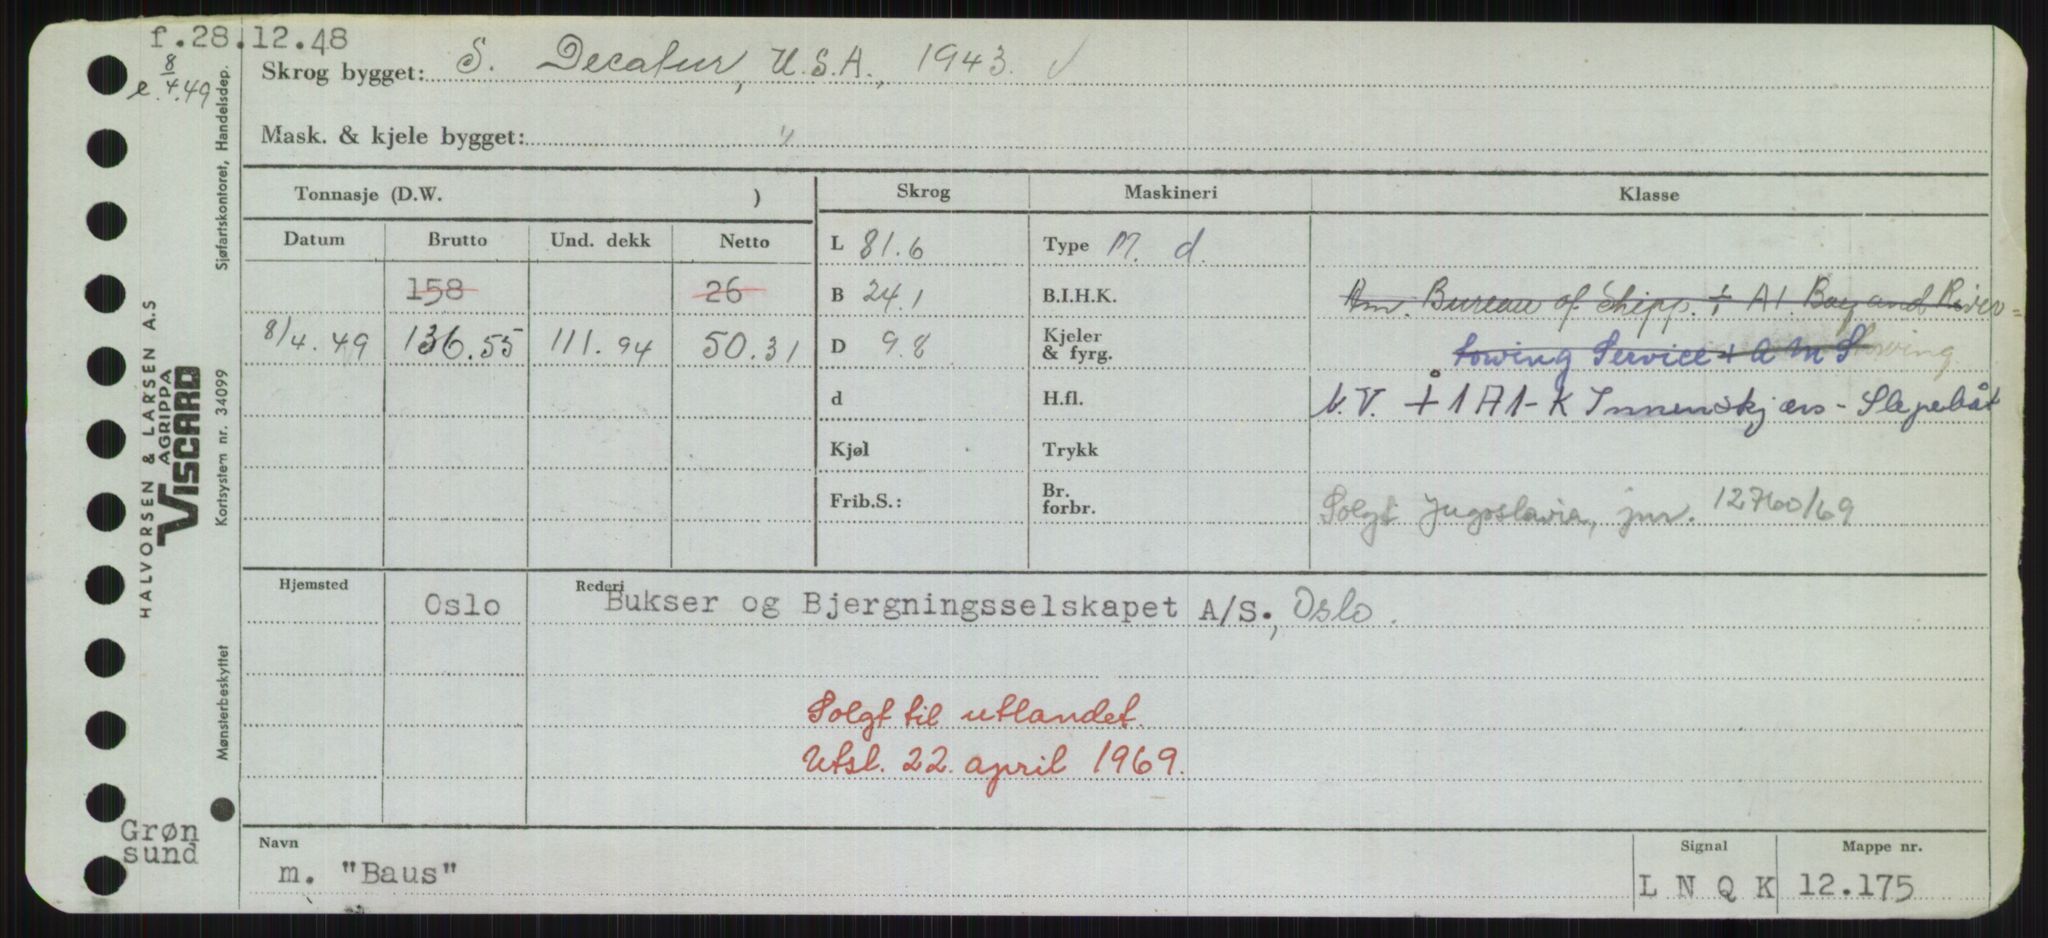 f.28.12.48
e. 8/4.49
Skrog bygget: S. Decatur, U.S.A., 1943. ✓
Mask. & kjele bygget: "
Tonnasje (D.W. ) Skrog Maskineri Klasse
Datum Brutto Und. dekk Netto L 81.6 Type M. d.
158 26 B 24.1 B.I.H.K. Am. Bureau of Shipp. + A1. Bay and River=
8/4.49 136.55 111.94 50.31 D 9.8 Kjeler & fyrg. towing Service + A M S
d H.fl. N.V. + 1A1-K Innenskjærs - Slepebåt
Kjøl Trykk
Frib.S.: Br. forbr. Solgt Jugoslavia, jnr. 12760/69
Hjemsted Rederi
Oslo Bukser og Bjergningsselskapet A/S., Oslo.
Solgt til utlandet.
Utsl. 22. april 1969.
Navn Signal Mappe nr.
m. "Baus" L N Q K 12.175
Grøn
sund
HALVORSEN & LARSEN A.S
AGRIPPA
VISCARD
Sjøfartskontoret, Handelsdep.
Kortsystem nr. 34099
Mønsterbeskyttet